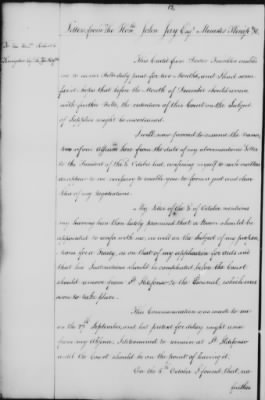 12.
Letters from the Honble John Jay Esqr
To the Honble
This Credit from Doctor Franklin enables
me to meet Bills daily paid for two Months, and I had some
fears Notes that before the Month of December should arrive
with further Bills, the intention of this Court on the Subject
of Supplies might be ascertained.
I will now proceed to resume the
of our affairs here from the date of my abovementioned Letter
to the President of the 6 October last, confining myself to such matters
as appear to me necessary to enable you to form a just and clear
Idea of my Negotiations.
My Letter of the 6 of October mentions
my having been then lately promised that a Person should be
appointed to confer with me, as well on the Subject of my propos
Treaty, as on that of my application for aids and
that his Instructions should be compleated before the Court
should remove from St Ildefonso to the Escurial, which was
soon to take place.
This Communication was made to me
on the 27th September, and lest pretext for delay might arise
from my absence, I determined to remain at St Ildefonso
until the Court should be on the point of leaving it.
On the 5th October I found, that, no
further